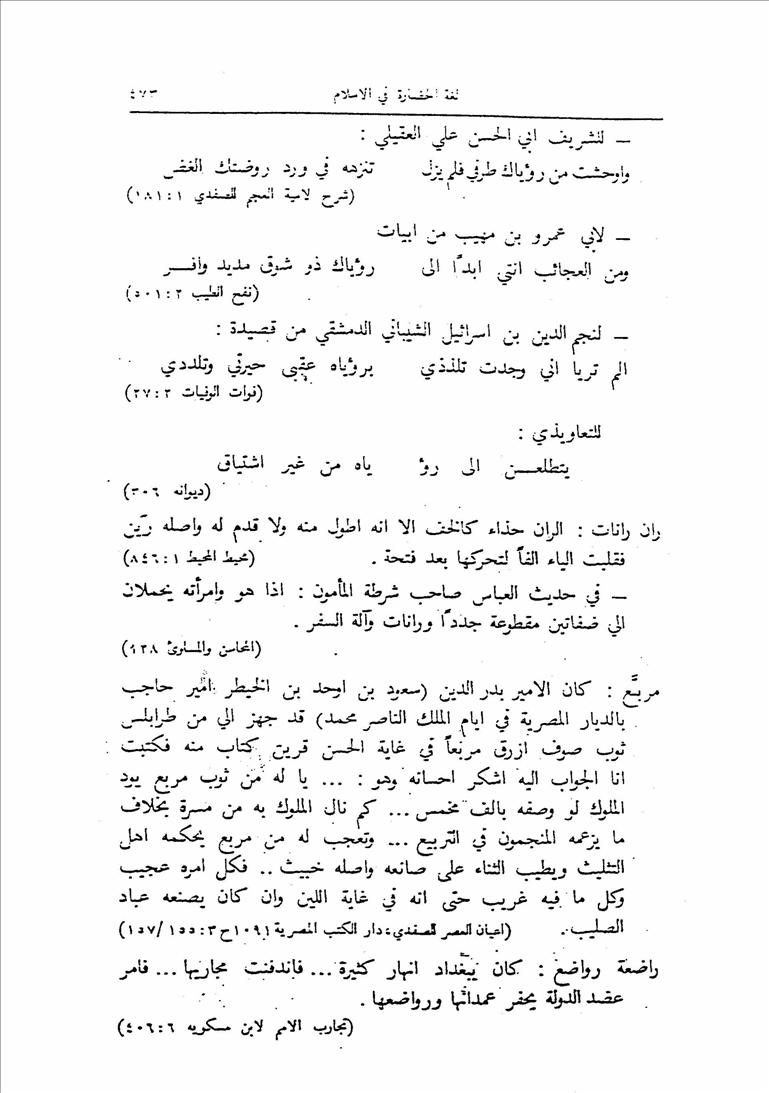 لغة الحضارة في الاسلام ٤٧٣
— للشريف ابي الحسن علي العقيلي :
واوحشت من رؤياك طرفي فلم يزل تنزهه في ورد روضتك الغض
(شرح لامية العجم للصفدي ١ : ١٨١)
— لابي عمرو بن مهيب من ابيات
ومن العجائب انني ابداً الى رؤياك ذو شوق مديد وافـــر
(نفح الطيب ٢ : ٥٠١)
— لنجم الدين بن اسرائيل الشيباني الدمشقي من قصيدة :
الم تريا اني وجدت تلذذي برؤياه عقبى حيرتي وتلددي
(فوات الوفيات ٢ : ٢٧)
للتعاويذي :
يتطلعـــن الى رؤ ياه من غير اشتياق
(ديوانه ٣٠٦)
ران رانات : الران حذاء كالخف الا انه اطول منه ولا قدم له واصله رَين
فقلبت الياء الفاً لتحركها بعد فتحة . (محيط المحيط ١ : ٨٤٦)
— في حديث العباس صاحب شرطة المأمون : اذا هو وامرأته يحملان
الي ضفاتين مقطوعة جدداً ورانات وآلة السفر .
(المحاسن والمساوئ ١٣٨)
مربَّع : كان الامير بدر الدين (سعود بن اوحد بن الخيطر امير حاجب
بالديار المصرية في ايام الملك الناصر محمد) قد جهز الي من طرابلس
ثوب صوف ازرق مربعاً في غاية الحسن قرين كتاب منه فكتبت
انا الجواب اليه اشكر احسانه وهو : ... يا له من ثوب مربع يود
الملوك لو وصفه بالف مخمس ... كم نال الملوك به من مسرة بخلاف
ما يزعمه المنجمون في التربيع ... وتعجب له من مربع يحكمه اهل
التثليث ويطيب الثناء على صانعه واصله خبيث .. فكل امره عجيب
وكل ما فيه غريب حتى انه في غاية اللين وان كان يصنعه عباد
الصليب . (اعيان العصر للصفدي ، دار الكتب المصرية ١٠٩١ ح ٣ : ١٥٥ / ١٥٧)
راضعة رواضع : كان ببغداد انهار كثيرة ... فاندفنت مجاريها ... فامر
عضد الدولة بحفر عمداتها ورواضعها .
(تجارب الامم لابن مسكويه ٦ : ٤٠٦)